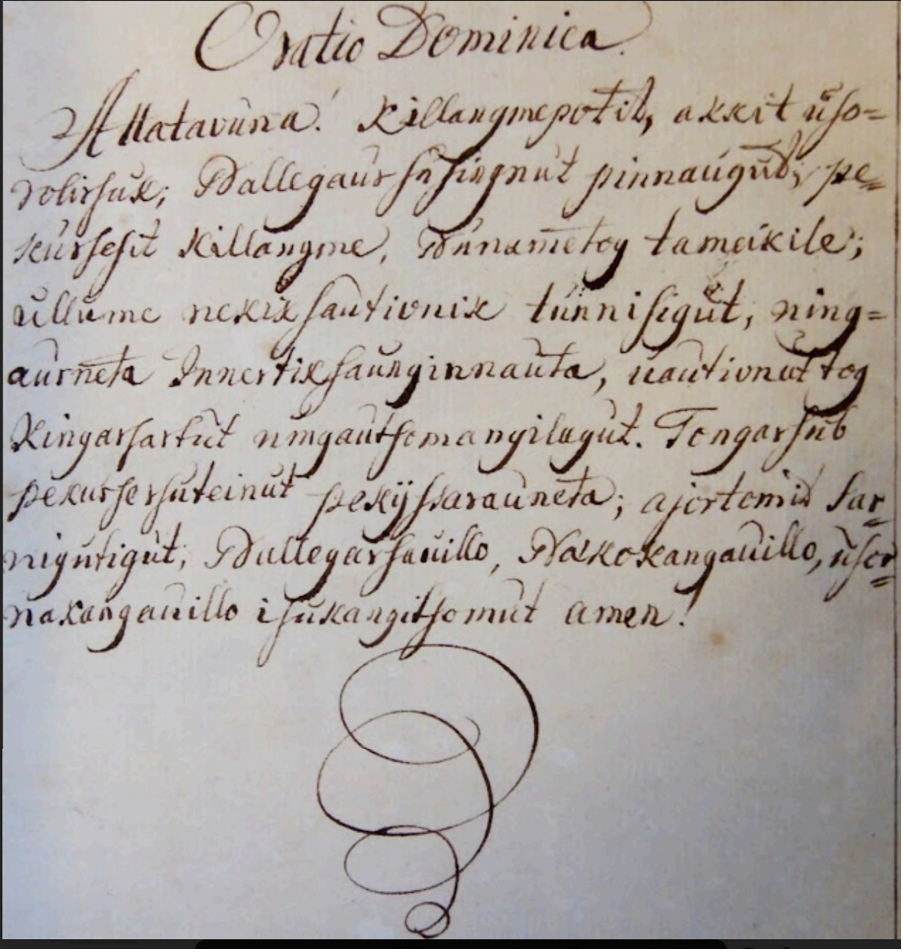 Oratio Dominica.
Attatavúna! Killangmepotit, akkit úso=
rolirsuk; Nallegaursúsingnut pinnaugúd; pe=
kúrsesit Killangme, Núnametog tameikile;
úllume nekiksautivnik túnnisigút, ning=
aurneta Innertiksaunginnauta, úautivnut tog
Kingarsartut ningautsomangilagut. Tongarsúb
pekursersúteinut pekijssaraúneta; ajortomid sar=
nigútigút; Nallegarsauillo, Nakokangauillo, úsor=
nakangauillo isúkangitsomút amen!